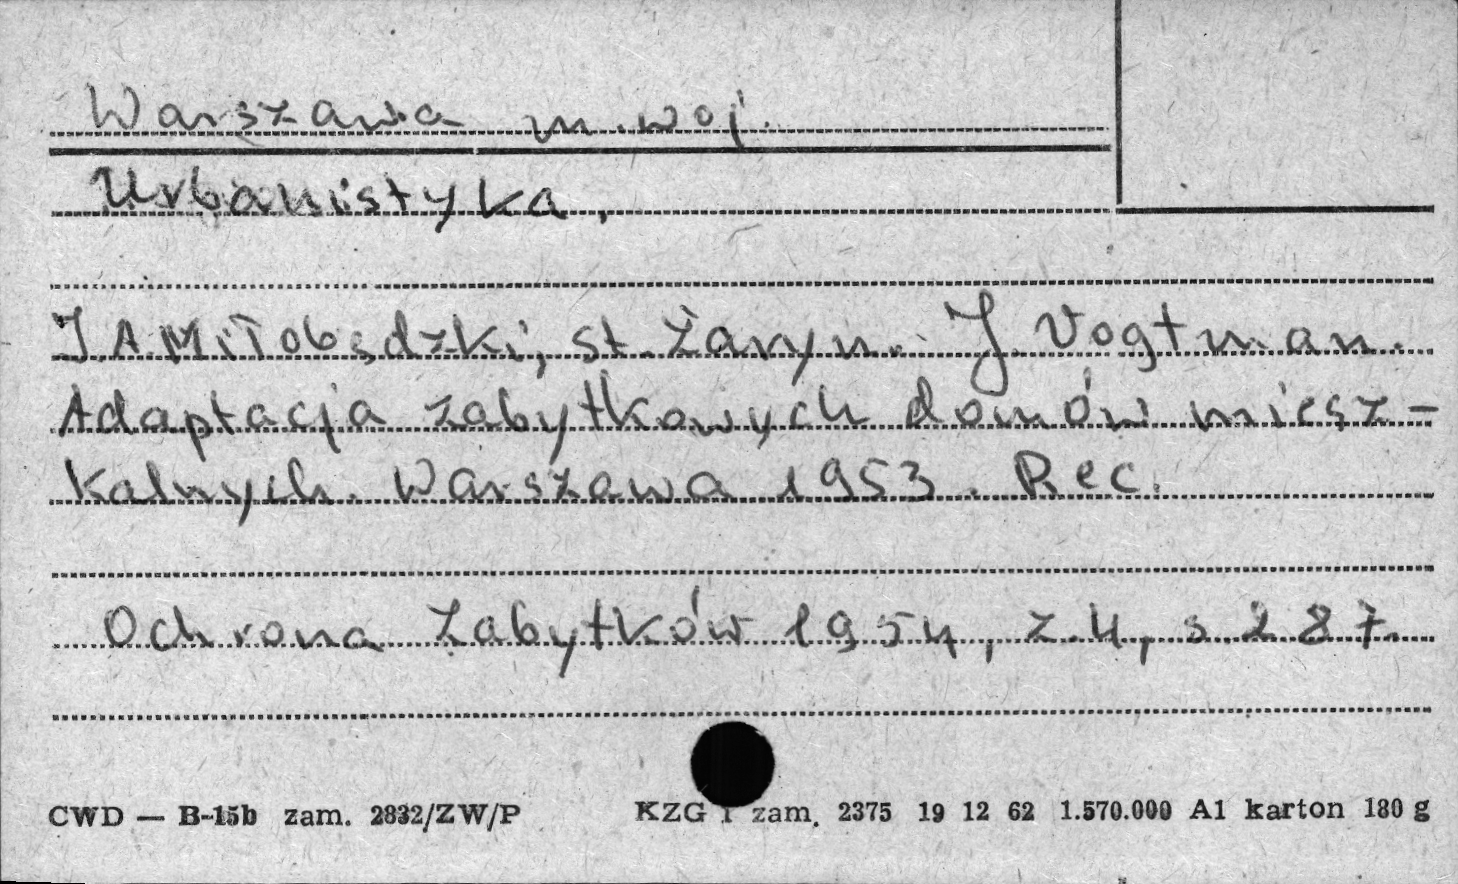 Warszawa m. woj.
Urbanistyka,
J. A. Miłobędzki, St. Żaryn. J. Vogtman.
Adaptacja zabytkowych domów miesz-
kalnych. Warszawa 1953. Rec.
Ochrona Zabytków 1954, z. 4, s. 287.
CWD — B-15b zam. 2832/ZW/P KZG 1 zam. 2375 19 12 62 1.570.000 A1 karton 180 g